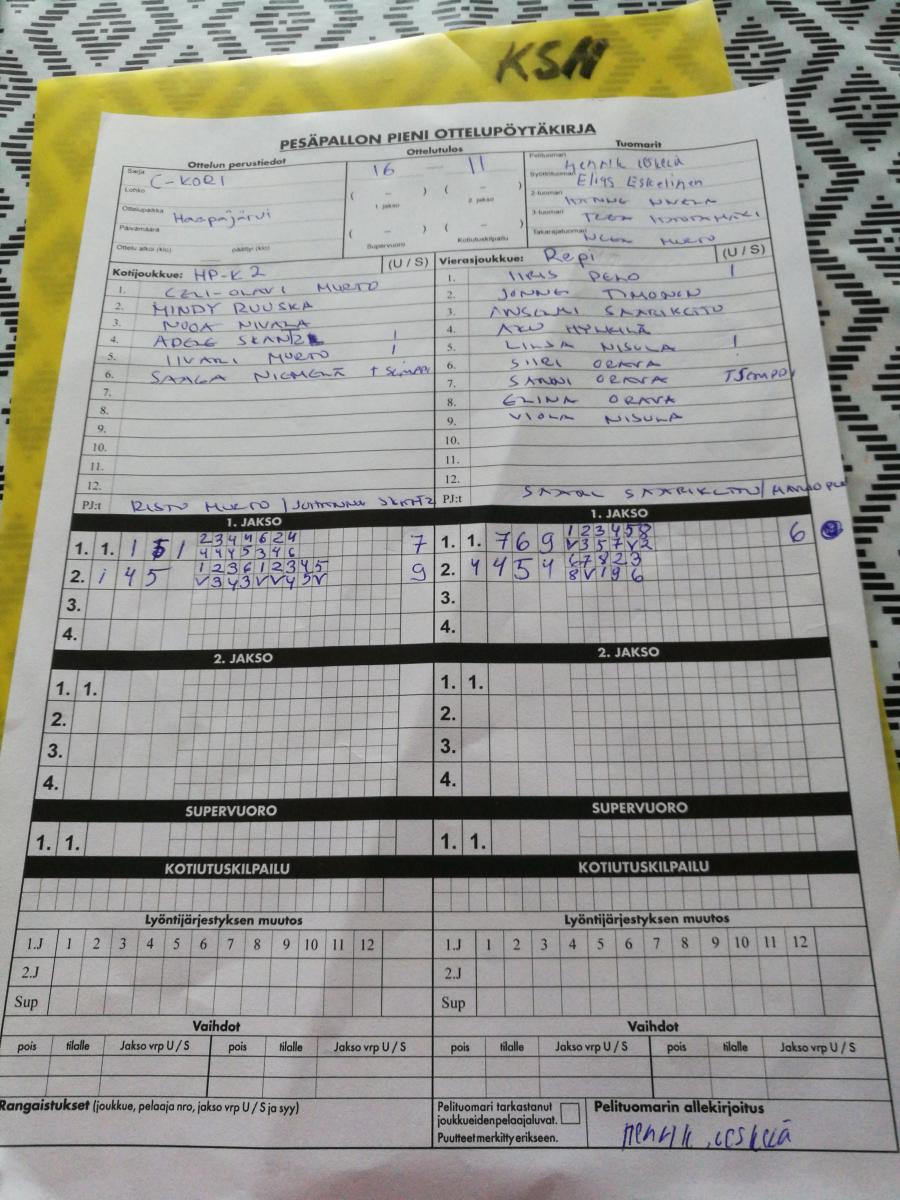 KSH
PESÄPALLON PIENI OTTELUPÖYTÄKIRJA
Ottelun perustiedot
Ottelutulos
Tuomarit
Sarja C-KORI
16 — 11
Pelituomari Henrik
Lohko
( – ) ( – )
Syöttötuomari Elias Eskelinen
1. jakso 2. jakso
2-tuomari
Ottelupaikka Haapajärvi
3-tuomari
Päivämäärä
( – ) ( – )
Takarajatuomari MURTO
Ottelu alkoi (klo) päättyi (klo)
Supervuoro Kotiutuskilpailu
Kotijoukkue: HP-K2 (U / S)
Vierasjoukkue: Repi (U / S)
1. OLAVI MURTO
1. IIRIS PEKO 1
2. MINDY RUUSKA
2. TIMONEN
3. NOOA NIVALA
3. ANSELMI SAARIKETTU
4. ADELE 1
4. AKU
5. IIVARI MURTO 1
5. LINJA NISULA 1
6. SAAGA NIEMELÄ TSEMPPI
6. SIIRI ORAVA
7.
7. SANNI ORAVA TSEMPPI
8.
8. ELINA ORAVA
9.
9. VIOLA NISULA
10.
10.
11.
11.
12.
12.
PJ:t RISTO MURTO /
PJ:t
1. JAKSO
1. JAKSO
1. 1. 7
2 3 4 4 6 2 4
4 4 4 5 3 4 6
1. 1. 7 6 9 6
1 2 3 4 5 8
V 3 5 7 V 2
2. 1 4 5 9
1 2 3 6 1 2 3 4 5
V 3 4 3 V V 4 5 V
2. 4 4 5 4
6 7 8 2 3
8 V 1 9 6
3.
3.
4.
4.
2. JAKSO
2. JAKSO
1. 1.
1. 1.
2.
2.
3.
3.
4.
4.
SUPERVUORO
SUPERVUORO
1. 1.
1. 1.
KOTIUTUSKILPAILU
KOTIUTUSKILPAILU
Lyöntijärjestyksen muutos
Lyöntijärjestyksen muutos
1.J 1 2 3 4 5 6 7 8 9 10 11 12
1.J 1 2 3 4 5 6 7 8 9 10 11 12
2.J
2.J
Sup
Sup
Vaihdot
Vaihdot
pois tilalle Jakso vrp U / S pois tilalle Jakso vrp U / S
pois tilalle Jakso vrp U / S pois tilalle Jakso vrp U / S
Rangaistukset (joukkue, pelaaja nro, jakso vrp U / S ja syy)
Pelituomari tarkastanut
joukkueidenpelaajaluvat.
Puutteet merkitty erikseen.
Pelituomarin allekirjoitus
Henrik